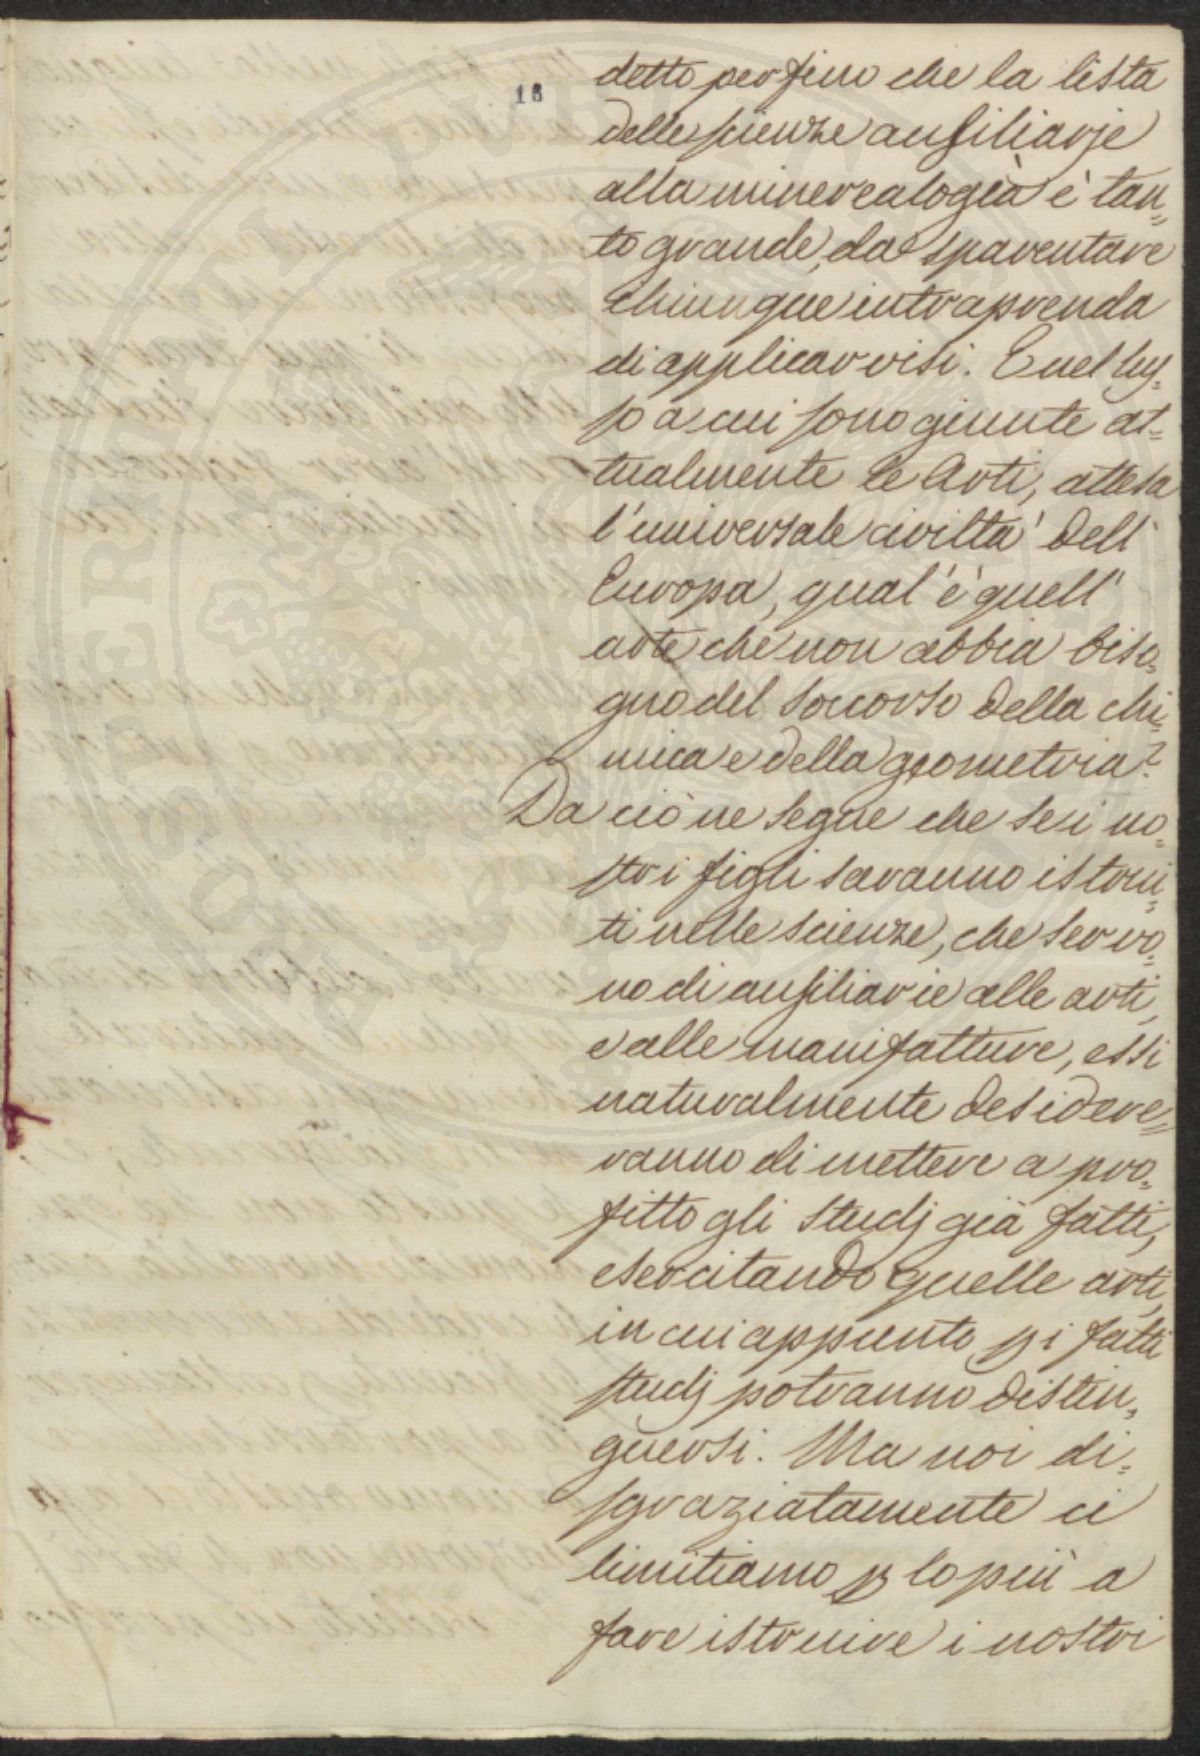 18
detto perfino che la lista
delle scienze ausiliarje
alla minerealogia è tan=
to grande, da spaventare
chiunque intraprenda
di applicarvisi. E nel lus=
so a cui sono giunte at=
tualmente le Arti, attesa
l'universale civiltà dell'
Europa, qual'è quell'
arte che non abbia biso=
gno del soccorso della chi=
mica e della geometria?
Da ciò ne segue che se i no=
stri figli saranno istrui=
ti nelle scienze, che servo=
no di ausiliarie alle arti,
e alle manifatture, essi
naturalmente desidere=
ranno di mettere a pro=
fitto gli studj già fatti,
esercitando quelle arti,
in cui appunto pi fatti
studj potranno distin=
guersi. Ma noi di=
sgraziatamente ci
limitiamo p lo più a
fare istruire i nostri